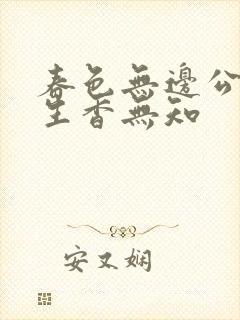 春色無邊公
生香無知
安又嫻